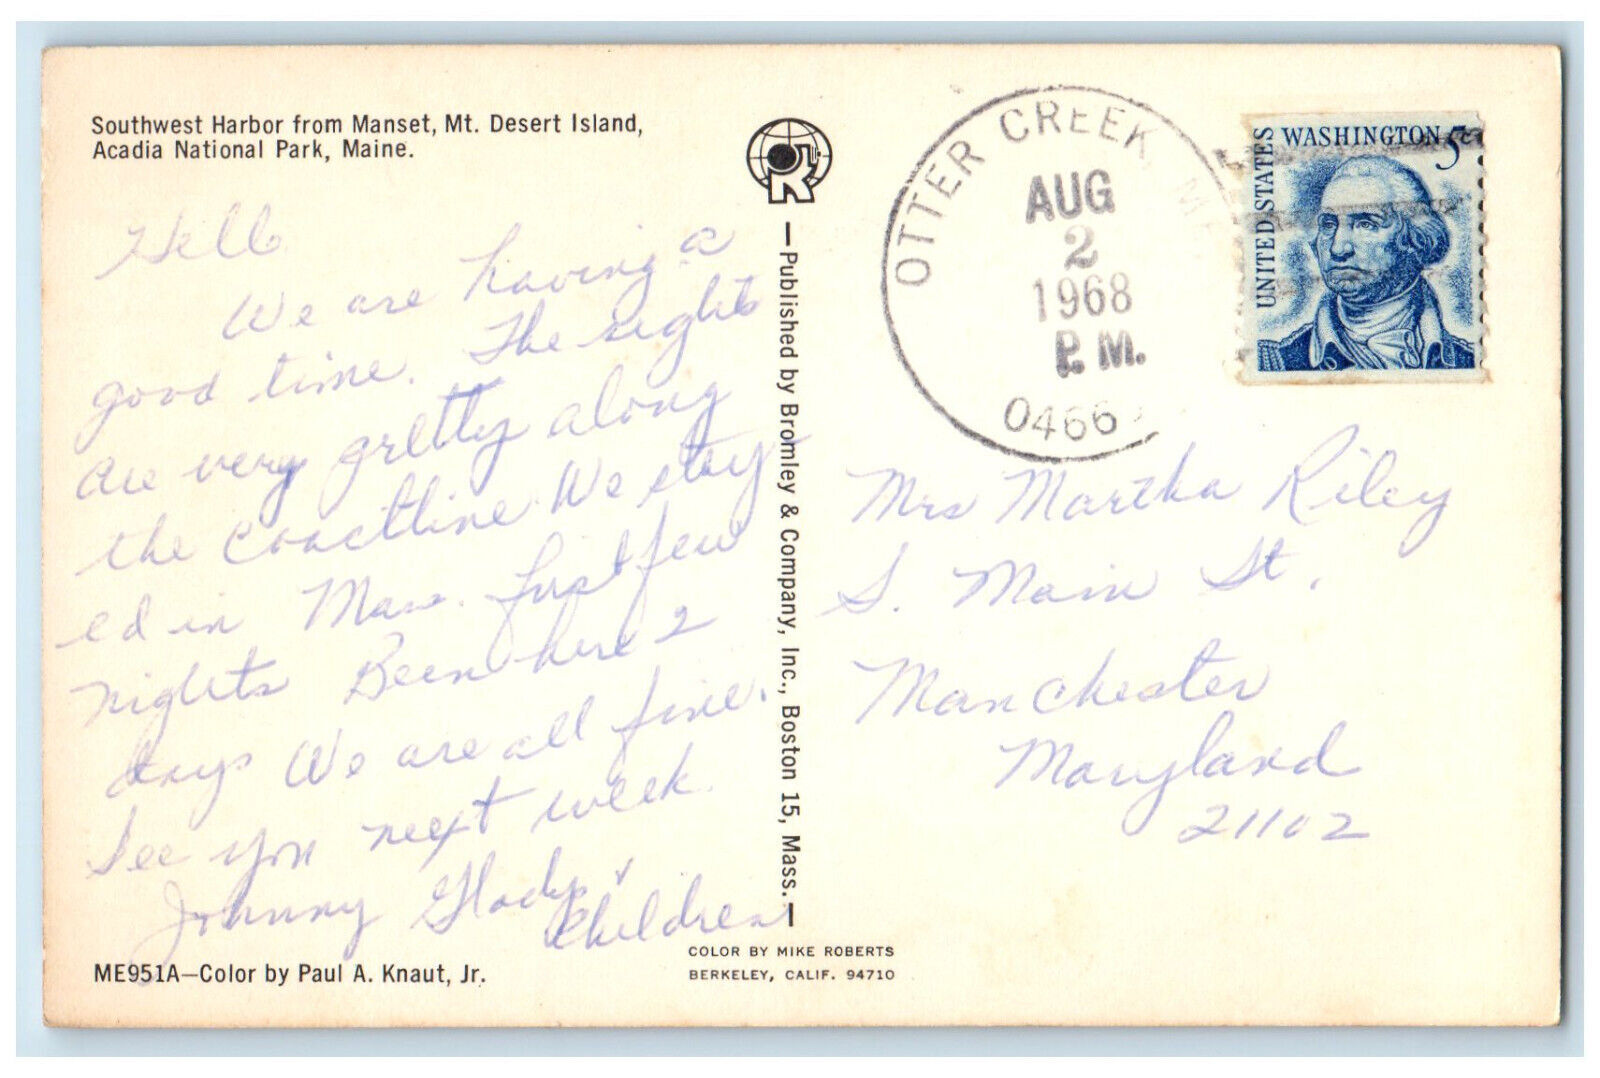 Southwest Harbor from Manset, Mt. Desert Island,
Acadia National Park, Maine.
Hello
We are having a
good time. The sights
are very pretty along
the coastline We stay
ed in Mass. first few
nights Been here 2
days We are all fine.
See you next week.
Johnny Gladys &
Children
ME951A—Color by Paul A. Knaut, Jr.
—Published by Bromley & Company, Inc., Boston 15, Mass.—
COLOR BY MIKE ROBERTS
BERKELEY, CALIF. 94710
OTTER CREEK
AUG
2
1968
P.M.
0466
UNITED STATES
WASHINGTON 5c
Mrs Martha Riley
S. Main St.
Manchester
Maryland
21102